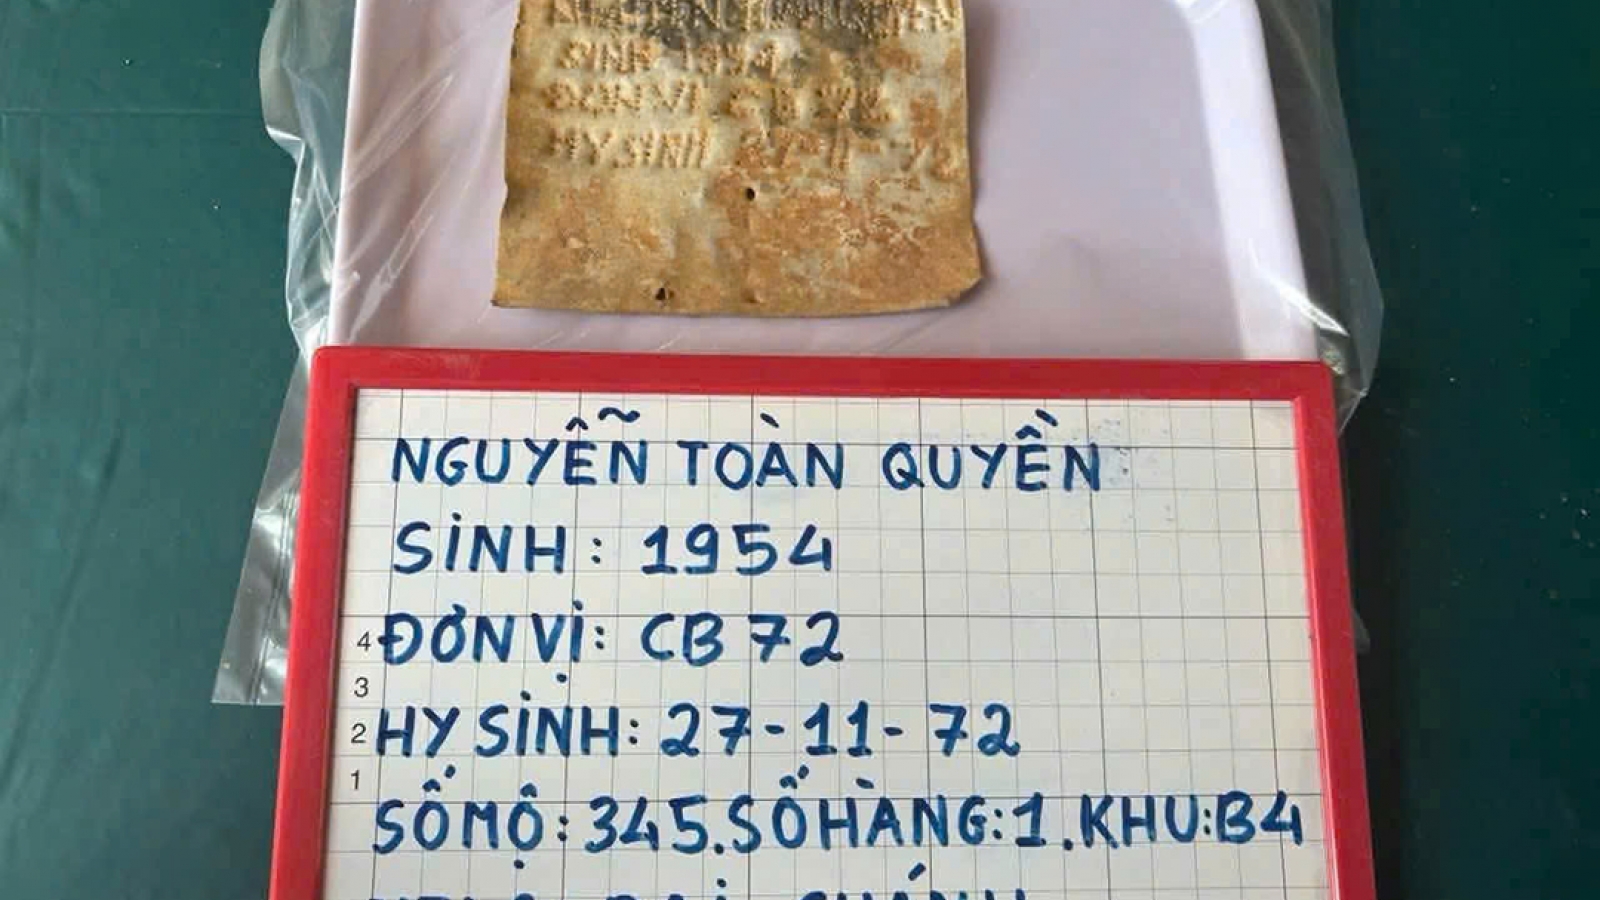 SINH 1954
ĐƠN VỊ CB 72
HY SINH 27-11-72
NGUYỄN TOÀN QUYỀN
SINH: 1954
4 ĐƠN VỊ: CB 72
3
2 HY SINH: 27-11-72
1
SỐ MỘ: 345. SỐ HÀNG: 1. KHU: B4